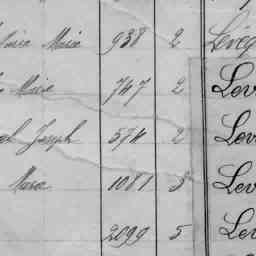 Maria 938 2 Léve
Maria 747 2 Lev
Joseph 574 2 Lev
Maria 1081 3 Lev
2099 5 Lev